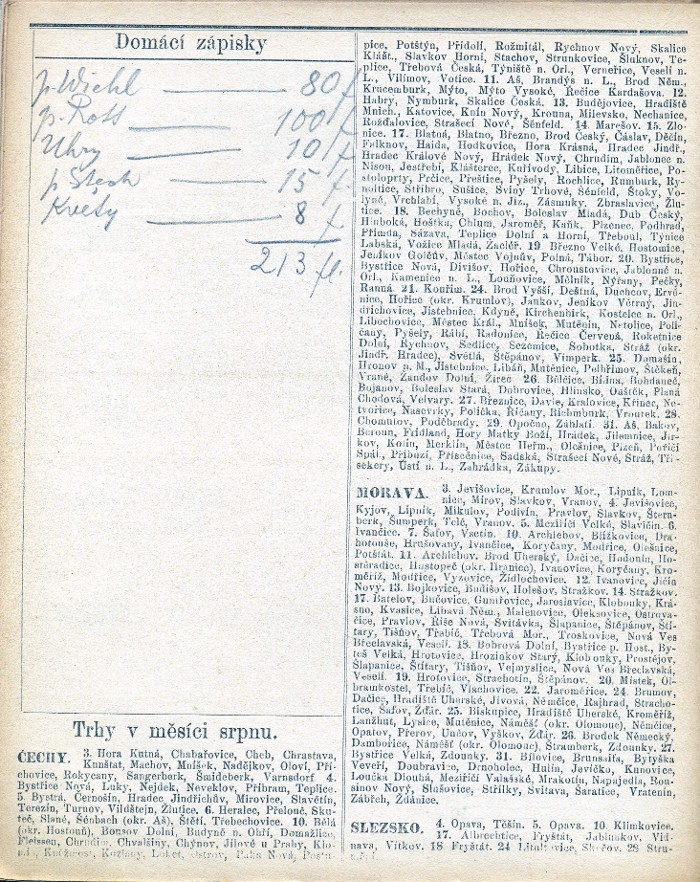 Domácí zápisky
p. Wiehl 80 f
p. Rott 100 f
Uhry 10 f
p. Stech 15 f
Kvety 8 f
213 fl.
Trhy v měsíci srpnu.
ČECHY. 3. Hora Kutná, Chabařovice, Cheb, Chrastava,
Kunštat, Machov, Mníšek, Nadějkov, Oloví, Pří-
chovice, Rokycany, Sangerberk, Šmideberk, Varnsdorf 4.
Bystřice Nová, Luky, Nejdek, Neveklov, Příbram, Teplice.
5. Bystrá, Černošín, Hradec Jindřichův, Mirovice, Slavětín,
Terezín, Turnov, Vildštejn, Žlutice. 6. Heralec, Přelouč, Sku-
teč, Slané, Šénbach (okr. Aš), Štětí, Třebechovice. 10. Bělá
(okr. Hostouň), Bonsov Dolní, Budyně n. Ohří, Domažlice,
Fleissen, Chrudim, Chvalšiny, Chýnov, Jílové u Prahy, Klo-
Kožlany, Loket, Ostrov, Paka Nová,
pice, Potštýn, Přídolí, Rožmitál, Rychnov Nový, Skalice
Klášt., Slavkov Horní, Stachov, Strunkovice, Šluknov, Te-
plice, Třebová Česká, Týniště n. Orl., Verneřice, Veselí n.
L., Vilímov, Votice. 11. Aš, Brandýs n. L., Brod Něm.,
Krucemburk, Mýto, Mýto Vysoké, Řečice Kardašova. 12.
Habry, Nymburk, Skalice Česká. 13. Budějovice, Hradiště
Mnich., Katovice, Knín Nový, Krouna, Milevsko, Nechanice,
Rožďalovice, Strašecí Nové, Šénfeld. 14. Maršov. 15. Zlo-
nice. 17. Blatná, Blatno, Březno, Brod Český, Čáslav, Děčín,
Falknov, Haida, Hodkovice, Hora Krásná, Hradec Jindř.,
Hradec Králové Nový, Hrádek Nový, Chrudim, Jablonec n.
Nisou, Jestřebí, Klášterec, Kuřívody, Libice, Litoměřice, Po-
stoloprty, Prčice, Přeštice, Pyšely, Rochlice, Rumburk, Ry-
noltice, Stříbro, Sušice, Sviny Trhové, Šénfeld, Štoky, Vo-
lyně, Vrchlabí, Vysoké n. Jiz., Zásmuky, Zbraslavice, Žlu-
tice. 18. Bechyně, Bochov, Boleslav Mladá, Dub Český,
Hluboká, Hoštka, Chlum, Jaroměř, Kaňk, Plzenec, Podhrad,
Přimda, Sázava, Teplice Dolní a Horní, Třeboul, Týnice
Labská, Vožice Mladá, Žacléř. 19 Březno Velké, Hostomice,
Jeníkov Golčův, Městec Vojnův, Polná, Tábor. 20. Bystřice,
Bystřice Nová, Divišov, Hořice, Chroustovice, Jablonné n.
Orl., Kamenice n. L., Louňovice, Mělník, Nýřany, Pečky,
Ranná. 21. Kouřim. 24. Brod Vyšší, Deštná, Duchcov, Ervě-
nice, Hořice (okr. Krumlov), Jankov, Jeníkov Větrný, Jin-
drichovice, Jistebnice, Kdyně, Kirchenbirk, Kostelec n. Orl.,
Libochovice, Městec Král., Mníšek, Mutěnín, Netolice, Poli-
čany, Pyšely, Rábí, Radonice, Řečice Červená, Roketnice
Dolní, Rychnov, Sedlice, Sezemice, Sobotka, Stráž (okr.
Jindř. Hradec), Světlá, Štěpánov, Vimperk. 25. Domašín,
Hronov n. M., Jistebnice, Libáň, Mutěnice, Pelhřimov, Štěkeň,
Vrané, Žandov Dolní, Žírec 26. Bělčice, Bílina, Bohdaneč,
Bojanov, Boleslav Stará, Dobrovice, Hlinsko, Ouštěk, Planá
Chodová, Velvary. 27. Březnice, Davle, Kralovice, Křinec, Ne-
tvořice, Nasevrky, Polička, Říčany, Richmburk, Vroutek. 28.
Chomutov, Poděbrady. 29. Opočno, Záblatí. 31. Aš, Bakov,
Beroun, Frídland, Hory Matky Boží, Hrádek, Jilemnice, Jir-
kov, Kolín, Merklín, Městec Heřm., Olešnice, Plzeň, Poříčí
Spál., Příbuzí, Přísečnice, Sadská, Strašecí Nové, Stráž, Tři-
sekery, Ústí n. L., Zahrádka, Zákupy.
MORAVA. 3. Jevišovice, Kramlov Mor., Lipník, Lom-
nice, Mírov, Slavkov, Vranov. 4. Jevišovice,
Kyjov, Lipník, Mikulov, Podivín, Pravlov, Slavkov, Štern-
berk, Šumperk, Telč, Vranov. 5. Meziříčí Velké, Slavičín. 6.
Ivančice. 7. Šafov, Vsetín. 10. Archlebov, Blížkovice, Dra-
hotouše, Hrušovany, Ivančice, Koryčany, Modřice, Olešnice,
Potštát. 11. Archlebov, Brod Uherský, Dačice, Hodonín, Ho-
stěradice, Hustopeč (okr. Hranice), Ivanovice, Koryčany, Kro-
měříž, Modřice, Vyzovice, Židlochovice. 12. Ivanovice, Jičín
Nový. 13. Bojkovice, Budišov, Holešov, Stražkov. 14. Stražkov.
17. Batelov, Bučovice, Gumířovice, Jaroslavice, Klobouky, Krá-
sno, Kvasice, Libavá Něm., Malenovice, Oleksovice, Ostrova-
čice, Pravlov, Říše Nová, Svitávka, Šlapanice, Štěpánov, Ští-
tary, Tišňov, Třebíč, Třebová Mor., Troskovice, Nová Ves
Břeclavská, Veselí. 18. Bobrová Dolní, Bystřice p. Host., By-
teš Velká, Hrotovice, Hroziokov Starý, Klobouky, Prostějov,
Šlapanice, Štítary, Tišňov, Vejmyslice, Nová Ves Břeclavská,
Veselí. 19. Hrotovice, Strachotín, Štěpánov. 20. Místek, Ol-
bramkostel, Třebíč, Vlachovice. 22. Jaroměřice. 24. Brumov,
Dačice, Hradiště Uherské, Jívová, Němčice, Rajhrad, Stracho-
tice, Šafov, Žďár. 25. Biskupice, Hradiště Uherské, Kroměříž,
Lanžhut, Lysice, Mutěnice, Náměšť (okr. Olomouc), Němčice,
Opatov, Přerov, Unčov, Vyškov, Žďár. 26. Brodek Německý,
Dambořice, Náměšť (okr. Olomouc), Štramberk, Zdounky. 27.
Bystřice Velká, Zdounky. 31. Bílovice, Brumsaifa, Bytyška
Veveří, Doubravice, Drnholec, Hulín, Jevíčko, Kunovice,
Loučka Dlouhá, Meziříčí Valašské, Mrakotín, Napajedla, Rou-
sínov Nový, Slušovice, Střílky, Svitava, Šaratice, Vratenín,
Zábřeh, Ždánice.
SLEZSKO. 4. Opava, Těšín. 5. Opava. 10. Klimkovice.
17. Albrechtice, Fryštát, Jablunkov, Vid-
nava, Vítkov. 18 Fryštát. 24 28 Stru-